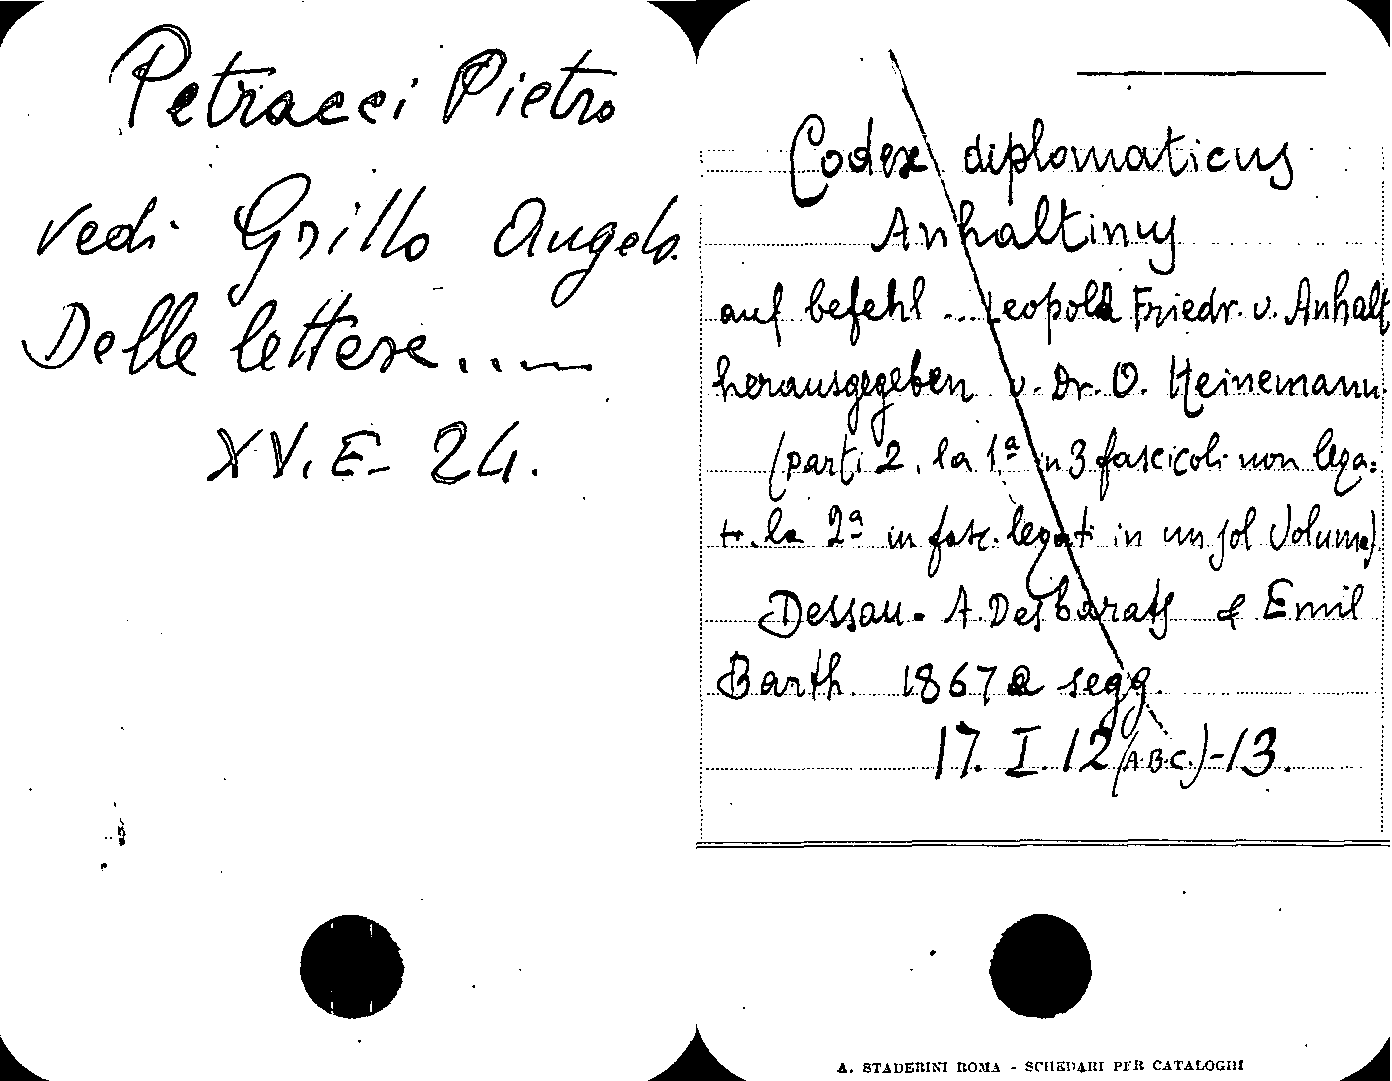 Petracci Pietro
vedi Grillo Angelo.
Delle lettere.....
XV. E- 24.
Codex diplomaticus
Anhaltinus
auf befehl ... Leopold Friedr. v. Anhalt
herausgegeben v. Dr. O. Heinemann.
(parti 2, la 1ª in 3 fascicoli non lega=
ti. la 2ª in fasc. legati in un sol Volume)
Dessau. A. Desbarats & Emil
Barth. 1867 e segg.
17. I. 12 (A B C.) - 13.
A. STADERINI ROMA - SCHEDARI PER CATALOGHI